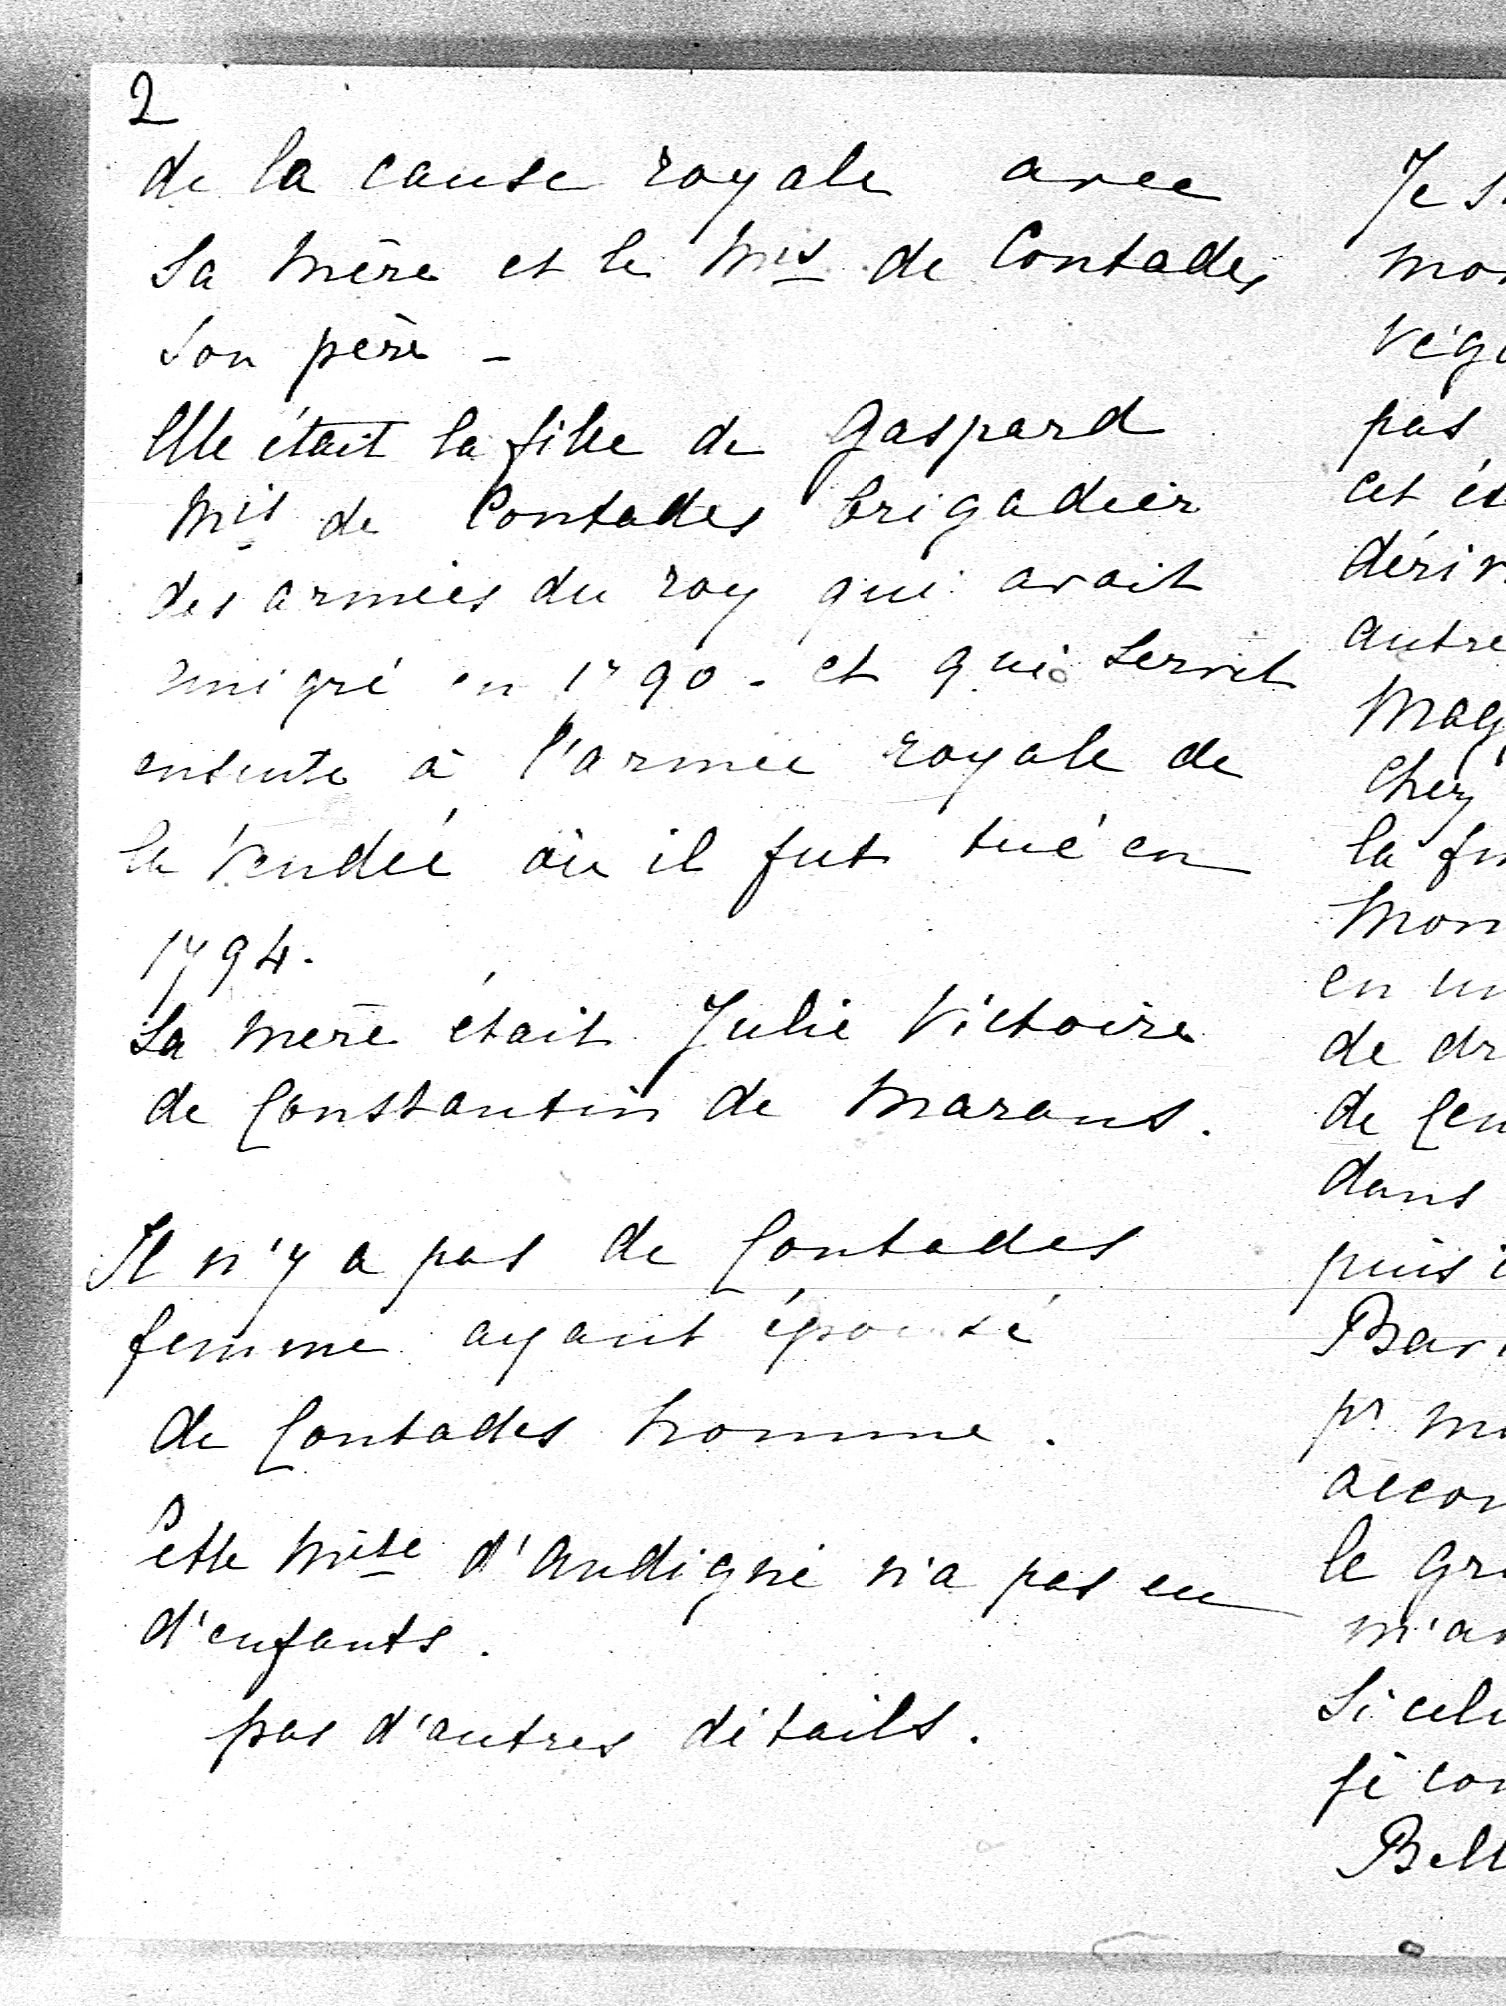 2
de la cause royale avec
sa mère et le Mis de Contades
son père -
Elle était la fille de Gaspard
Mis de Contades brigadier
des armées du roy qui avait
émigré en 1790 - et qui servit
ensuite à l'armée royale de
la Vendée où il fut tué en
1794.
Sa mère était Julie Victoire
de Constantin de Marans.
Il n'y a pas de Contades
femme ayant épousé
de Contades homme.
Cette Mise d'Andigné n'a pas eu
d'enfants.
pas d'autres détails.
Je
pas
autre
chez
la
en
de
de
dans
puis
pr
le